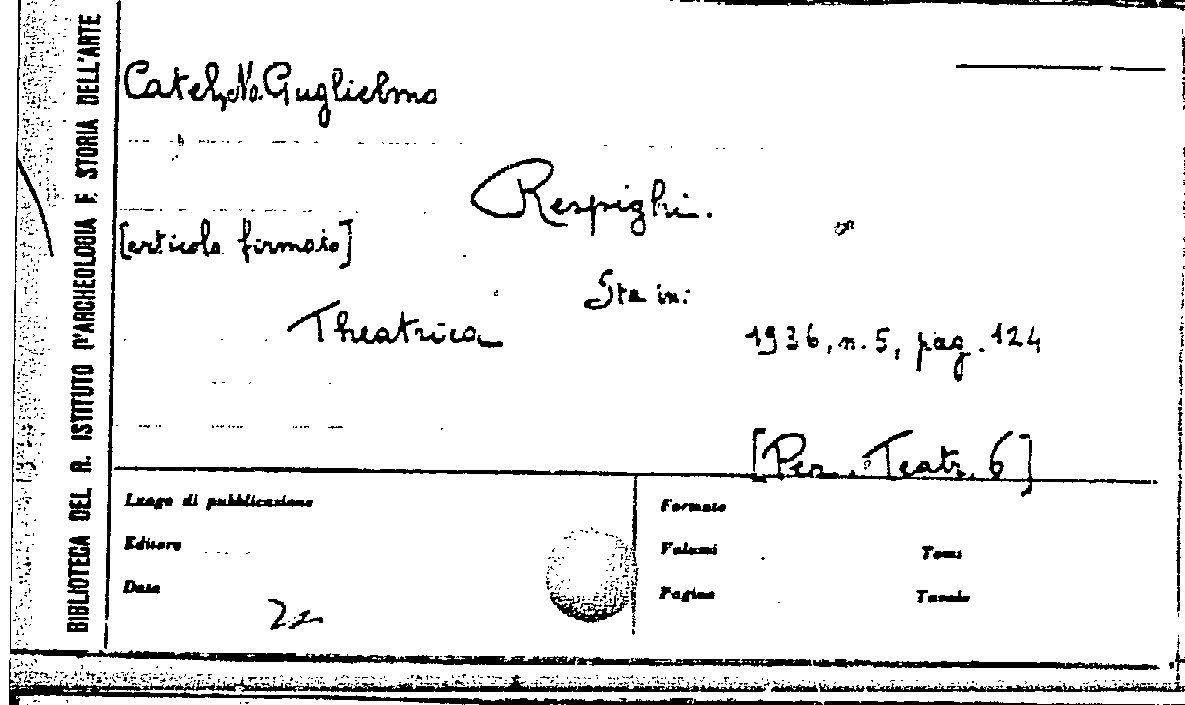 BIBLIOTECA DEL R. ISTITUTO D'ARCHEOLOGIA E STORIA DELL'ARTE
Guglielmo
Respighi.
[articolo firmato]
Sta in:
Theatrica
1936, n. 5, pag. 124
[Per. Teatr. 6]
Luogo di pubblicazione
Formato
Editore
Volumi
Tomi
Data
Pagine
Tavole